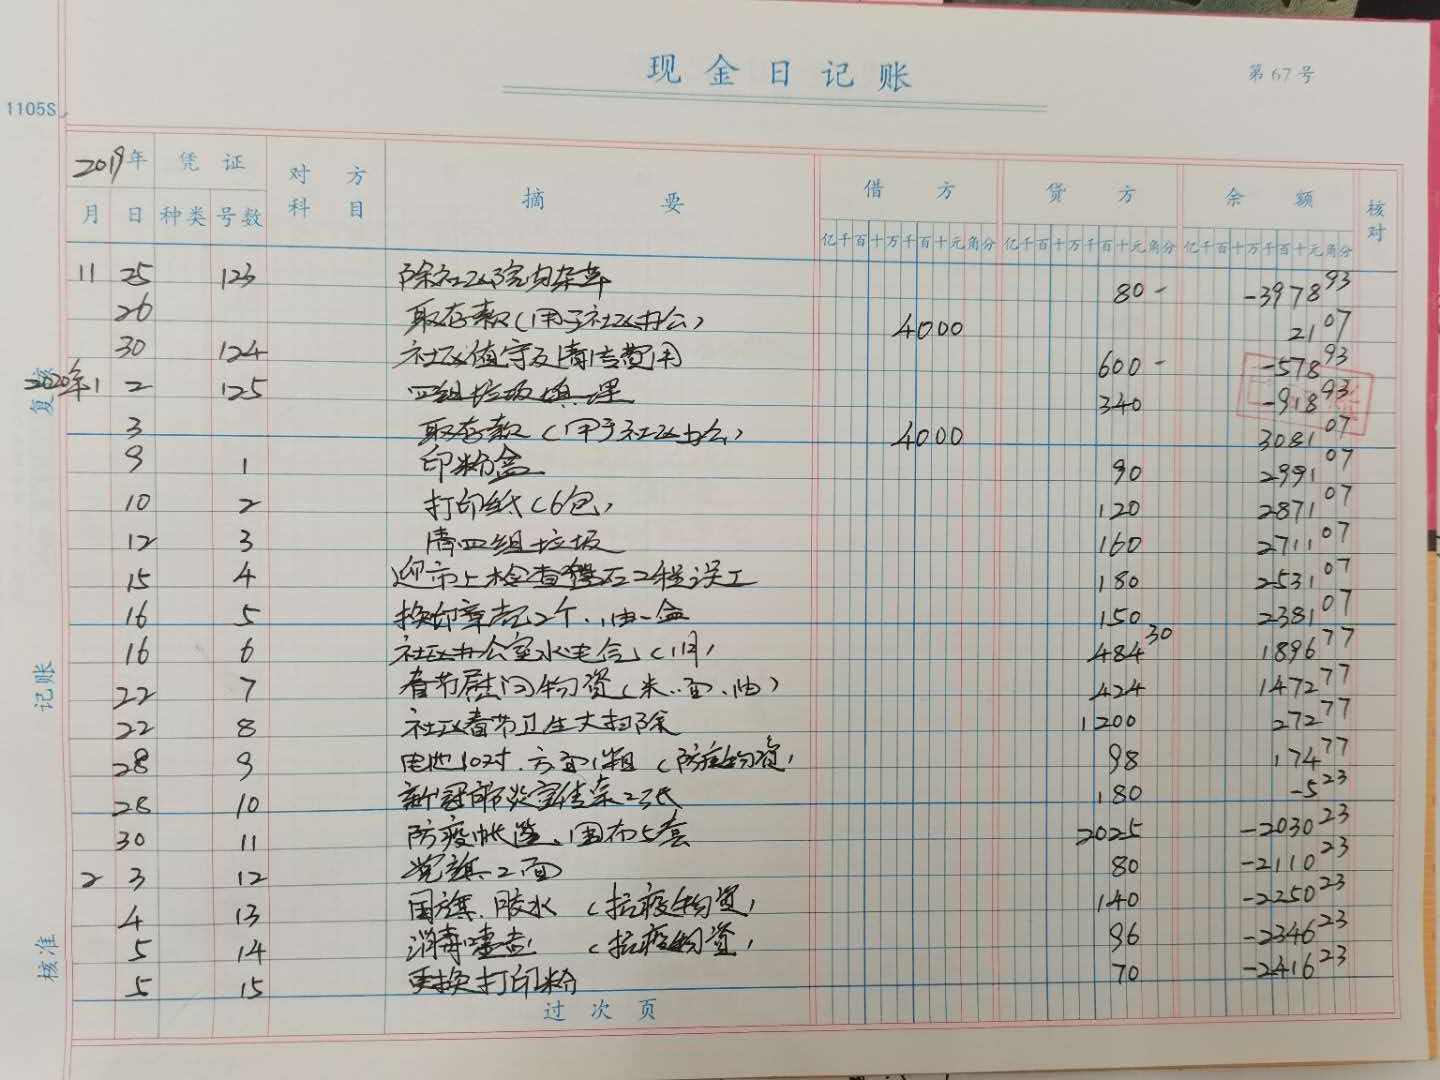 现金日记账
第67号
1105S
2019年 凭证 对方科目 摘要 借方 贷方 余额 核对
月 日 种类 号数 亿千百十万千百十元角分 亿千百十万千百十元角分 亿千百十万千百十元角分
11 25 123 除社区院内杂草 80- -3978 93
26 取存款(用于社区办公) 4000 21 07
30 124 社区值守及清洁费用 600- -578 93
2020年1 2 125 四组垃圾填埋 340 -918 93
3 取存款(用于社区办公) 4000 3081 07
9 1 印粉盒 90 2991 07
10 2 打印纸(6包) 120 2871 07
12 3 清四组垃圾 160 2711 07
15 4 迎市上检查 工程误工 180 2531 07
16 5 换印章 2个、油一盒 150 2381 07
16 6 社区办公室水电气(1月) 484 30 1896 77
22 7 春节慰问物资(米、面、油) 424 1472 77
22 8 社区春节卫生大扫除 1200 272 77
28 9 电池10对、方面1箱(防疫物资) 98 174 77
28 10 新冠肺炎宣传 180 -5 23
30 11 防疫帐篷、围布5套 2025 -2030 23
2 3 12 党旗2面 80 -2110 23
4 13 国旗、胶水(抗疫物资) 140 -2250 23
5 14 消毒 (抗疫物资) 96 -2346 23
5 15 更换打印粉 70 -2416 23
过次页
复核
记账
核准